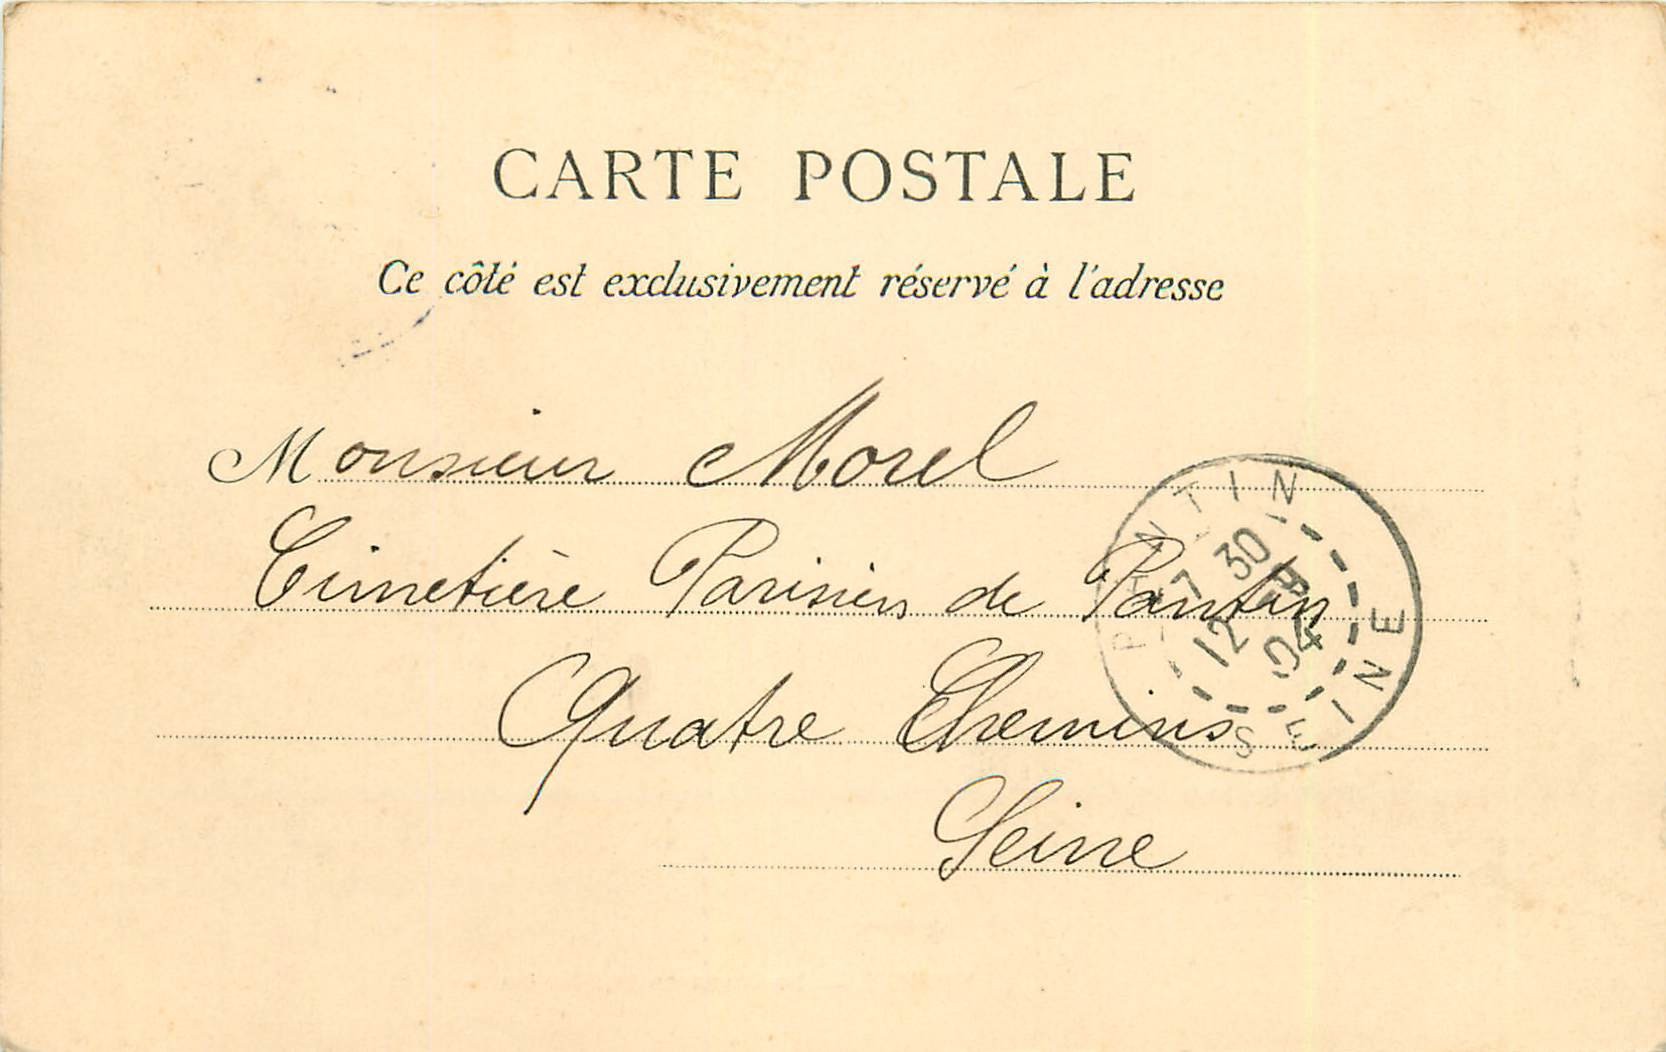 CARTE POSTALE
Ce côté est exclusivement réservé à l'adresse
Monsieur Morel
Cimetière Parisien de Pantin
Quatre Chemins
Seine
PANTIN
7 30
12
04
SEINE